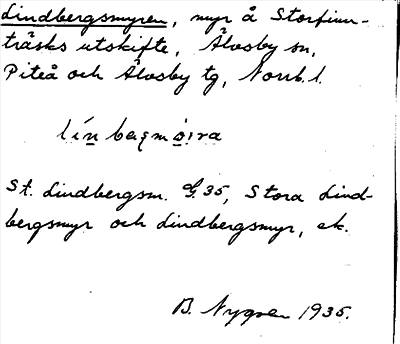 Lindbergsmyren, myr å Storfinn-
träsks utskifte, Älvsby sn,
Piteå och Älvsby tg, Norrb. l.
St. Lindbergsm. G. 35, Stora Lind-
bergsmyr och Lindbergsmyr, ek.
B. Nygren 1935.